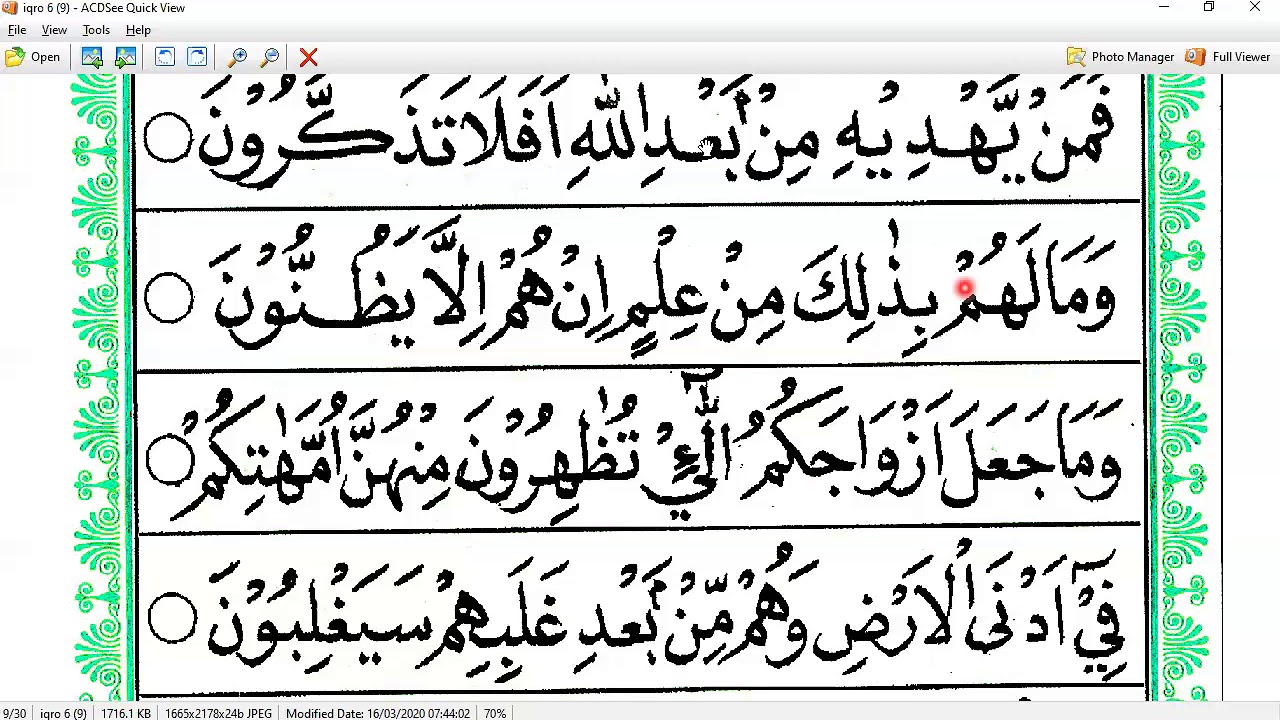 iqro 6 (9) - ACDSee Quick View
File View Tools Help
Open Photo Manager Full Viewer
فَمَنْ يَّهْدِيْهِ مِنْۢ بَعْدِ اللّٰهِ اَفَلَا تَذَكَّرُوْنَ
وَمَا لَهُمْ بِذٰلِكَ مِنْ عِلْمٍ اِنْ هُمْ اِلَّا يَظُنُّوْنَ
وَمَا جَعَلَ اَزْوَاجَكُمُ الّٰۤـِٔيْ تُظٰهِرُوْنَ مِنْهُنَّ اُمَّهٰتِكُمْ
فِيْۤ اَدْنَى الْاَرْضِ وَهُمْ مِّنْۢ بَعْدِ غَلَبِهِمْ سَيَغْلِبُوْنَ
9/30 iqro 6 (9) 1716.1 KB 1665x2178x24b JPEG Modified Date: 16/03/2020 07:44:02 70%